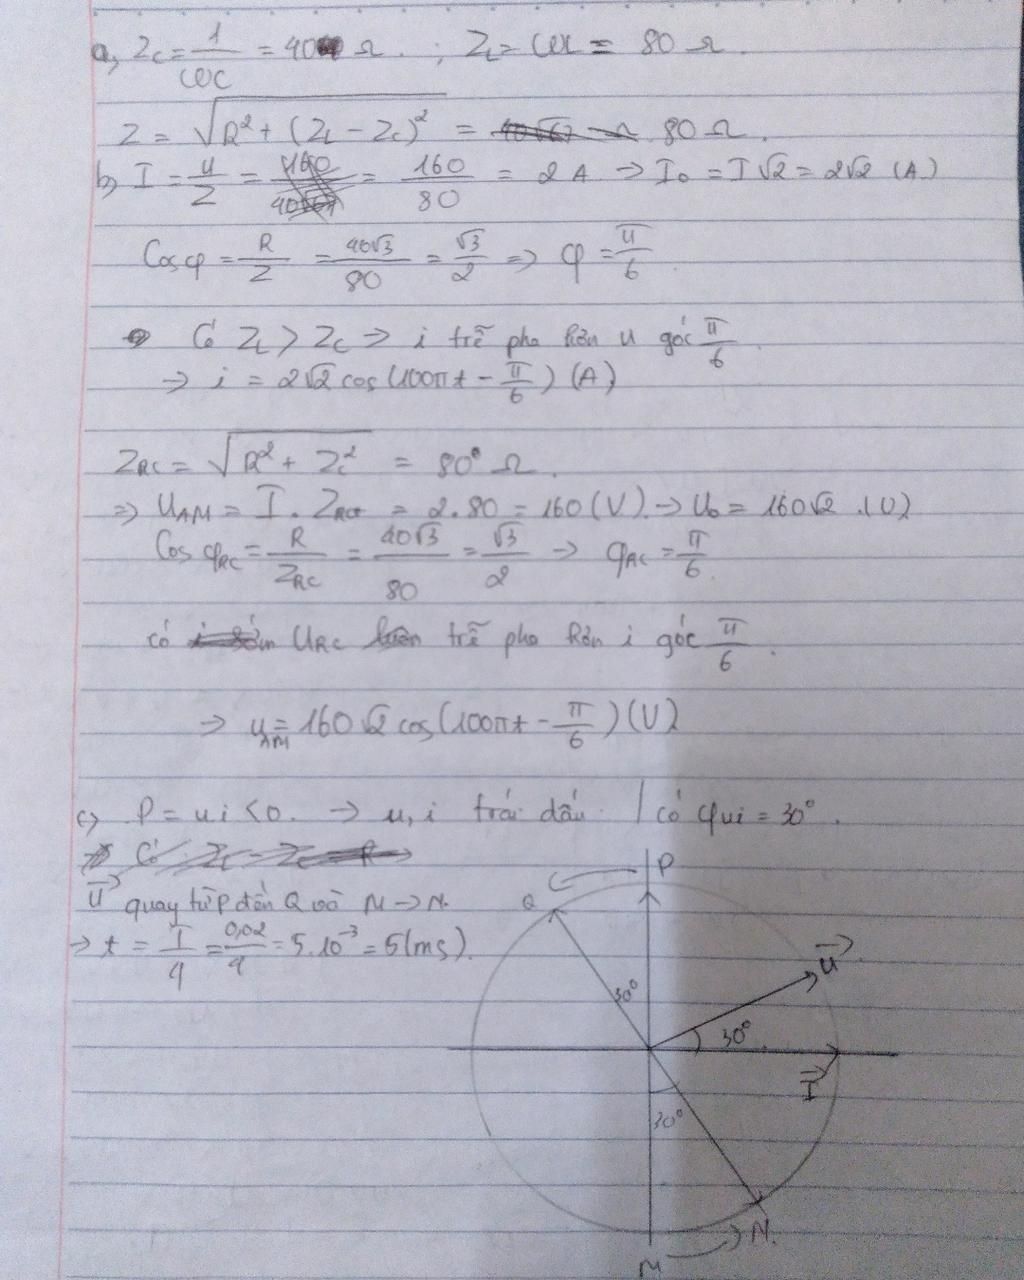 a, Zc = 1/ωC = 40 Ω. ; ZL = ωL = 80 Ω.
Z = √(R² + (ZL − Zc)²) = 80 Ω.
b, I = U/Z = 160/80 = 2 A → I₀ = I√2 = 2√2 (A)
Cosφ = R/Z = 40√3/80 = √3/2 => φ = π/6
Có ZL > Zc => i trễ pha hơn u góc π/6.
→ i = 2√2 cos(100πt − π/6) (A)
ZRC = √(R² + Zc²) = 80 Ω.
=> UAM = I . ZRC = 2.80 = 160 (V) → U₀ = 160√2 (V)
Cos φRC = R/ZRC = 40√3/80 = √3/2 → φRC = π/6.
có URC trễ pha hơn i góc π/6.
=> uAM = 160√2 cos(100πt − π/6) (V)
c, P = ui < 0. → u, i trái dấu. / có φui = 30°.
U quay từ P đến Q và M → N.
→ t = T/4 = 0,02/4 = 5.10⁻³ = 5(ms).
P
Q
30°
U
30°
I
30°
N
M